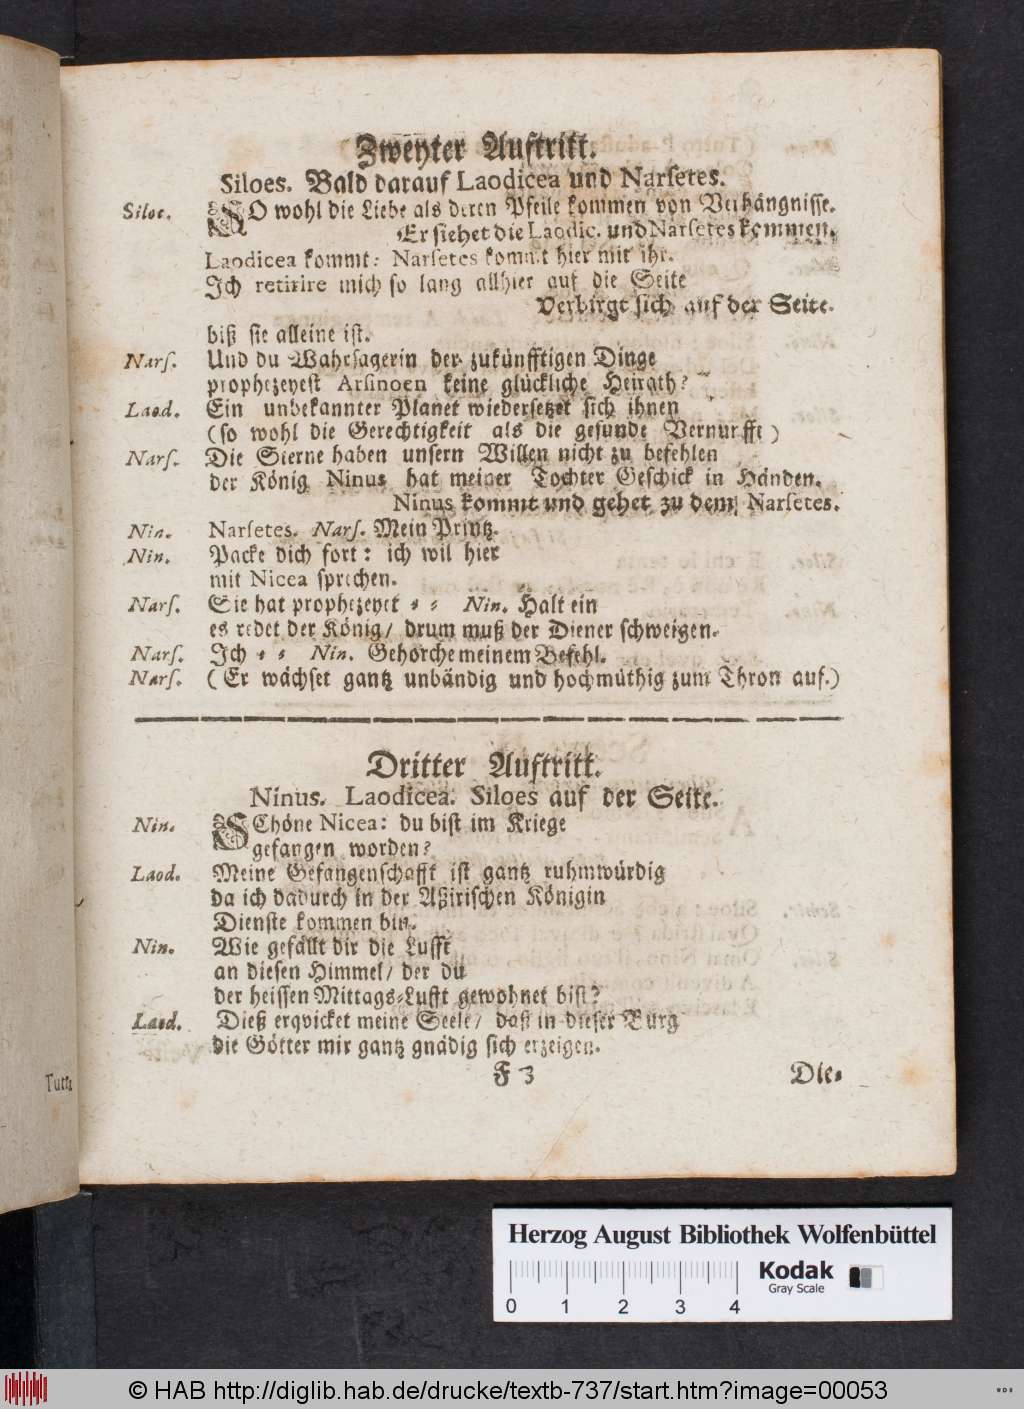 Zweyter Auftritt.
Siloes. Bald darauf Laodicea und Narsetes.
Siloe. SO wohl die Liebe als deren Pfeile kommen von Verhängnisse.
Er siehet die Laodic. und Narsetes kommen.
Laodicea kommt: Narsetes kommt hier mit ihr.
Ich retirire mich so lang allhier auf die Seite
Verbirgt sich auf der Seite.
biß sie alleine ist.
Nars. Und du Wahrsagerin der zukünfftigen Dinge
prophezeyest Arsinoen keine glückliche Heirath?
Laod. Ein unbekannter Planet wiedersetzet sich ihnen
(so wohl die Gerechtigkeit als die gesunde Vernunfft)
Nars. Die Sterne haben unsern Willen nicht zu befehlen
der König Ninus hat meiner Tochter Geschick in Händen.
Ninus kommt und gehet zu dem Narsetes.
Nin. Narsetes. Nars. Mein Printz.
Nin. Packe dich fort: ich wil hier
mit Nicea sprechen.
Nars. Sie hat prophezeyet = = Nin. Halt ein
es redet der König/ drum muß der Diener schweigen.
Nars. Ich = = Nin. Gehorche meinem Befehl.
Nars. (Er wächset gantz unbändig und hochmüthig zum Thron auf.)
Dritter Auftritt.
Ninus. Laodicea. Siloes auf der Seite.
Nin. SChöne Nicea: du bist im Kriege
gefangen worden?
Laod. Meine Gefangenschafft ist gantz ruhmwürdig
da ich dadurch in der Aßirischen Königin
Dienste kommen bin.
Nin. Wie gefällt dir die Lufft
an diesen Himmel/ der du
der heissen Mittags=Lufft gewohnet bist?
Laod. Dieß erqvicket meine Seele/ daß in dieser Burg
die Götter mir gantz gnädig sich erzeigen.
F 3 Die=
Tutto
Herzog August Bibliothek Wolfenbüttel
0 1 2 3 4
Kodak
Gray Scale
© HAB http://diglib.hab.de/drucke/textb-737/start.htm?image=00053